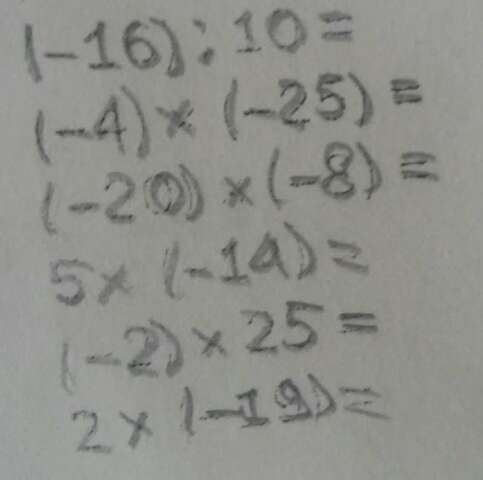 (-16):10=
(-4)×(-25)=
(-20)×(-8)=
5×(-14)=
(-2)×25=
2×(-19)=